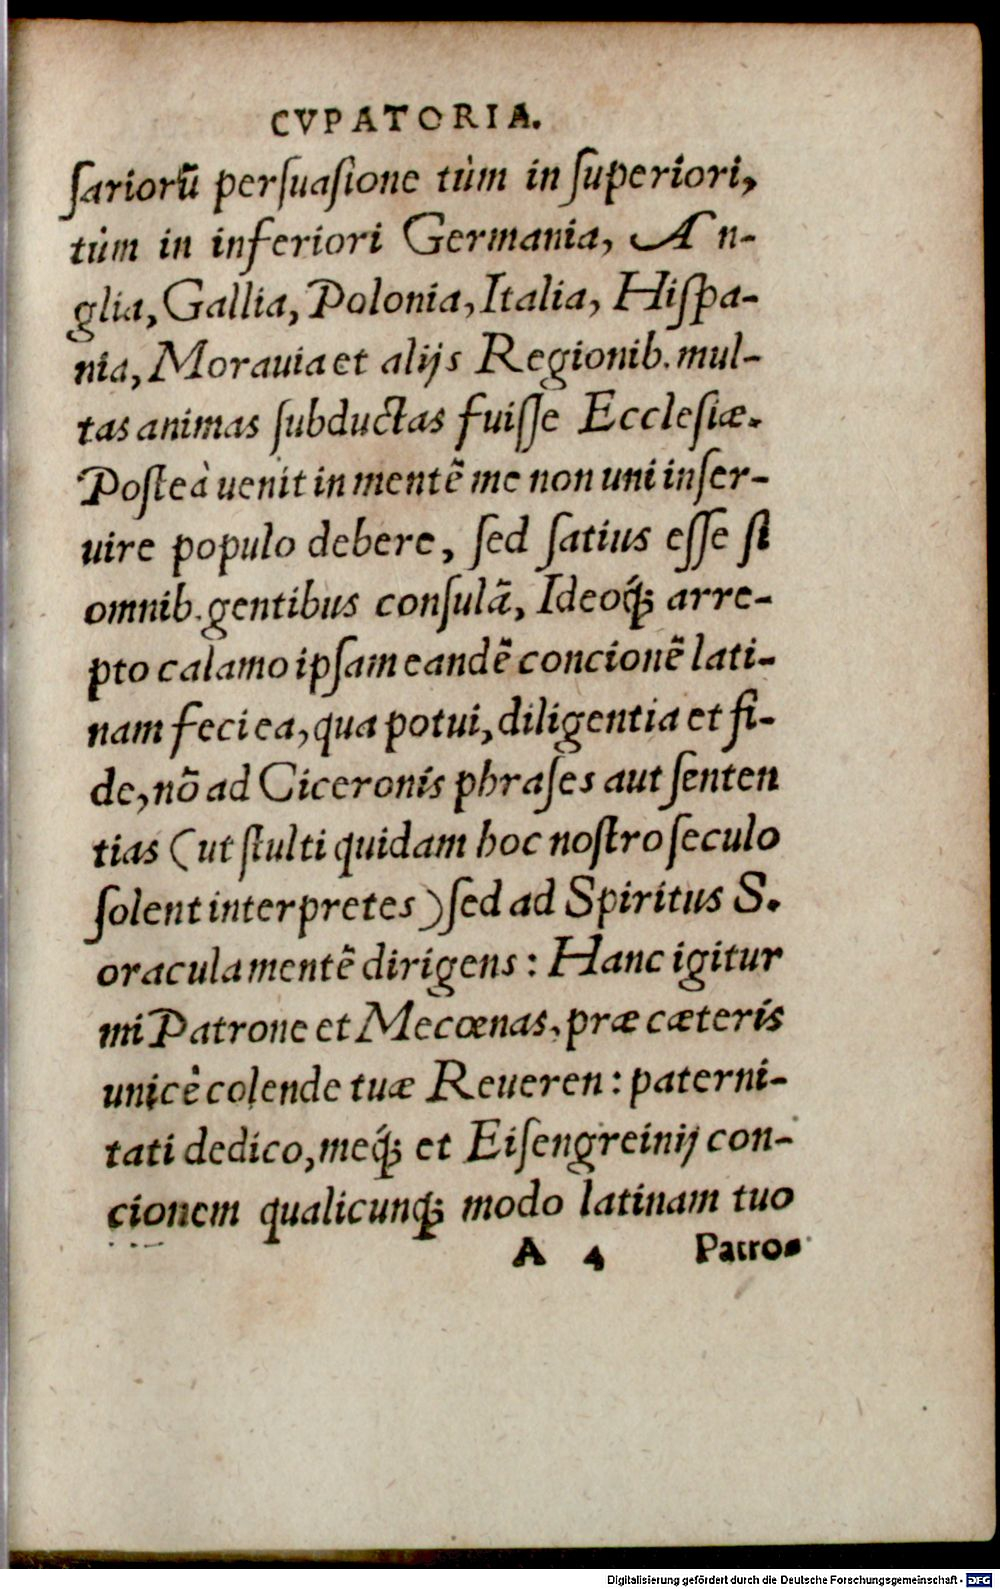 CVPATORIA.
ſariorũ perſuaſione tùm in ſuperiori,
tùm in inferiori Germania, An-
glia, Gallia, Polonia, Italia, Hiſpa-
nia, Morauia et alijs Regionib. mul-
tas animas ſubductas fuiſſe Eccleſiæ.
Poſteà uenit in mentẽ me non uni inſer-
uire populo debere, ſed ſatius eſſe ſi
omnib. gentibus conſulã, Ideoq́; arre-
pto calamo ipſam eandẽ concionẽ lati-
nam feci ea, qua potui, diligentia et fi-
de, nõ ad Ciceronis phraſes aut ſenten
tias (ut ſtulti quidam hoc noſtro ſeculo
ſolent interpretes) ſed ad Spiritus S.
oracula mentẽ dirigens: Hanc igitur
mi Patrone et Mecœnas, præ cæteris
unicè colende tuæ Reueren: paterni-
tati dedico, meq́; et Eiſengreinij con-
cionem qualicunq; modo latinam tuo
A 4 Patro-
Digitalisierung gefördert durch die Deutsche Forschungsgemeinschaft - DFG